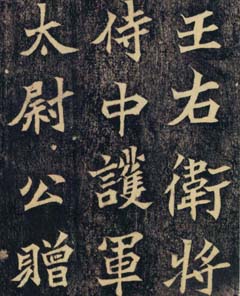 王右衛將
侍中護軍
太尉公贈